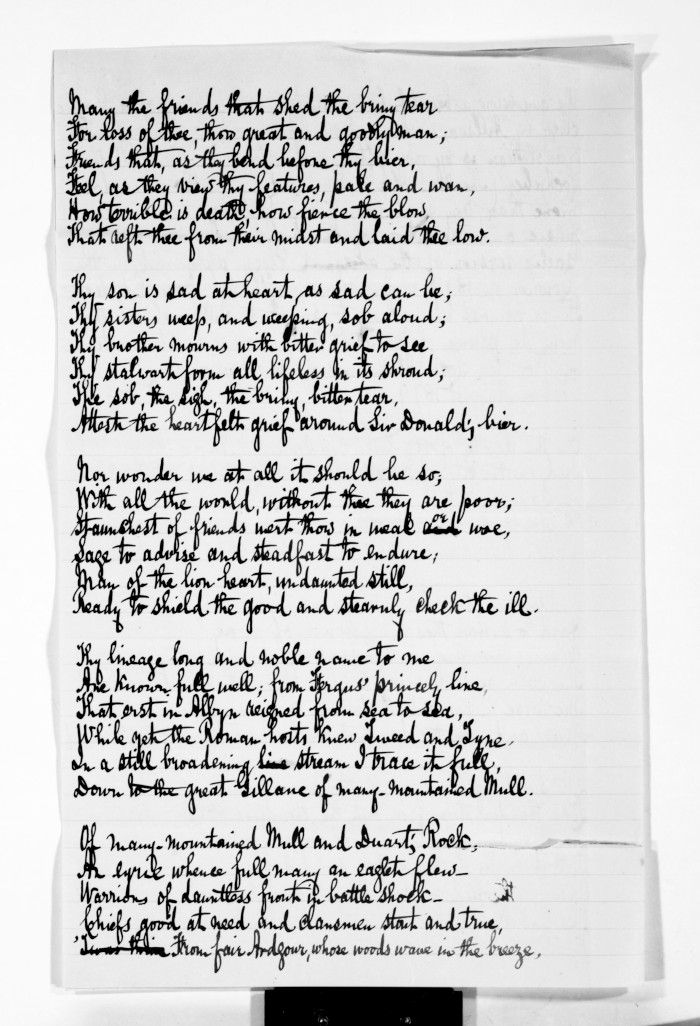 Many the friends that shed the briny tear
For loss of thee, thou great and goodly man;
Friends that, as they bend before thy bier,
Feel, as they view thy features, pale and wan,
How terrible is death, how fierce the blow
That reft thee from their midst and laid thee low.
Thy son is sad at heart as sad can be;
Thy sisters weep, and weeping, sob aloud;
Thy brother mourns with bitter grief to see
Thy stalwart form all lifeless in its shroud;
The sob, the sigh, the briny, bitter tear,
Attest the heartfelt grief around Sir Donald's bier.
Nor wonder we at all it should be so;
With all the world, without thee they are poor;
Staunchest of friends wert thou in weal and or woe,
Sage to advise and steadfast to endure;
Man of the lion heart, undaunted still,
Ready to shield the good and stearnly check the ill.
Thy lineage long and noble name to me
Are known full well; from Fergus' princely line,
That erst in Albyn reigned from sea to sea,
While yet the Roman hosts knew Tweed and Tyne.
In a still broadening line stream I trace it full,
Down to the great Gillane of many-mountained Mull.
Of many-mountained Mull and Duart's Rock,
An eyrie whence full many an eaglet flew—
Warriors of dauntless front in battle shock—
Chiefs good at need and clansmen stout and true,
From fair Ardgour, whose woods wave in the breeze,